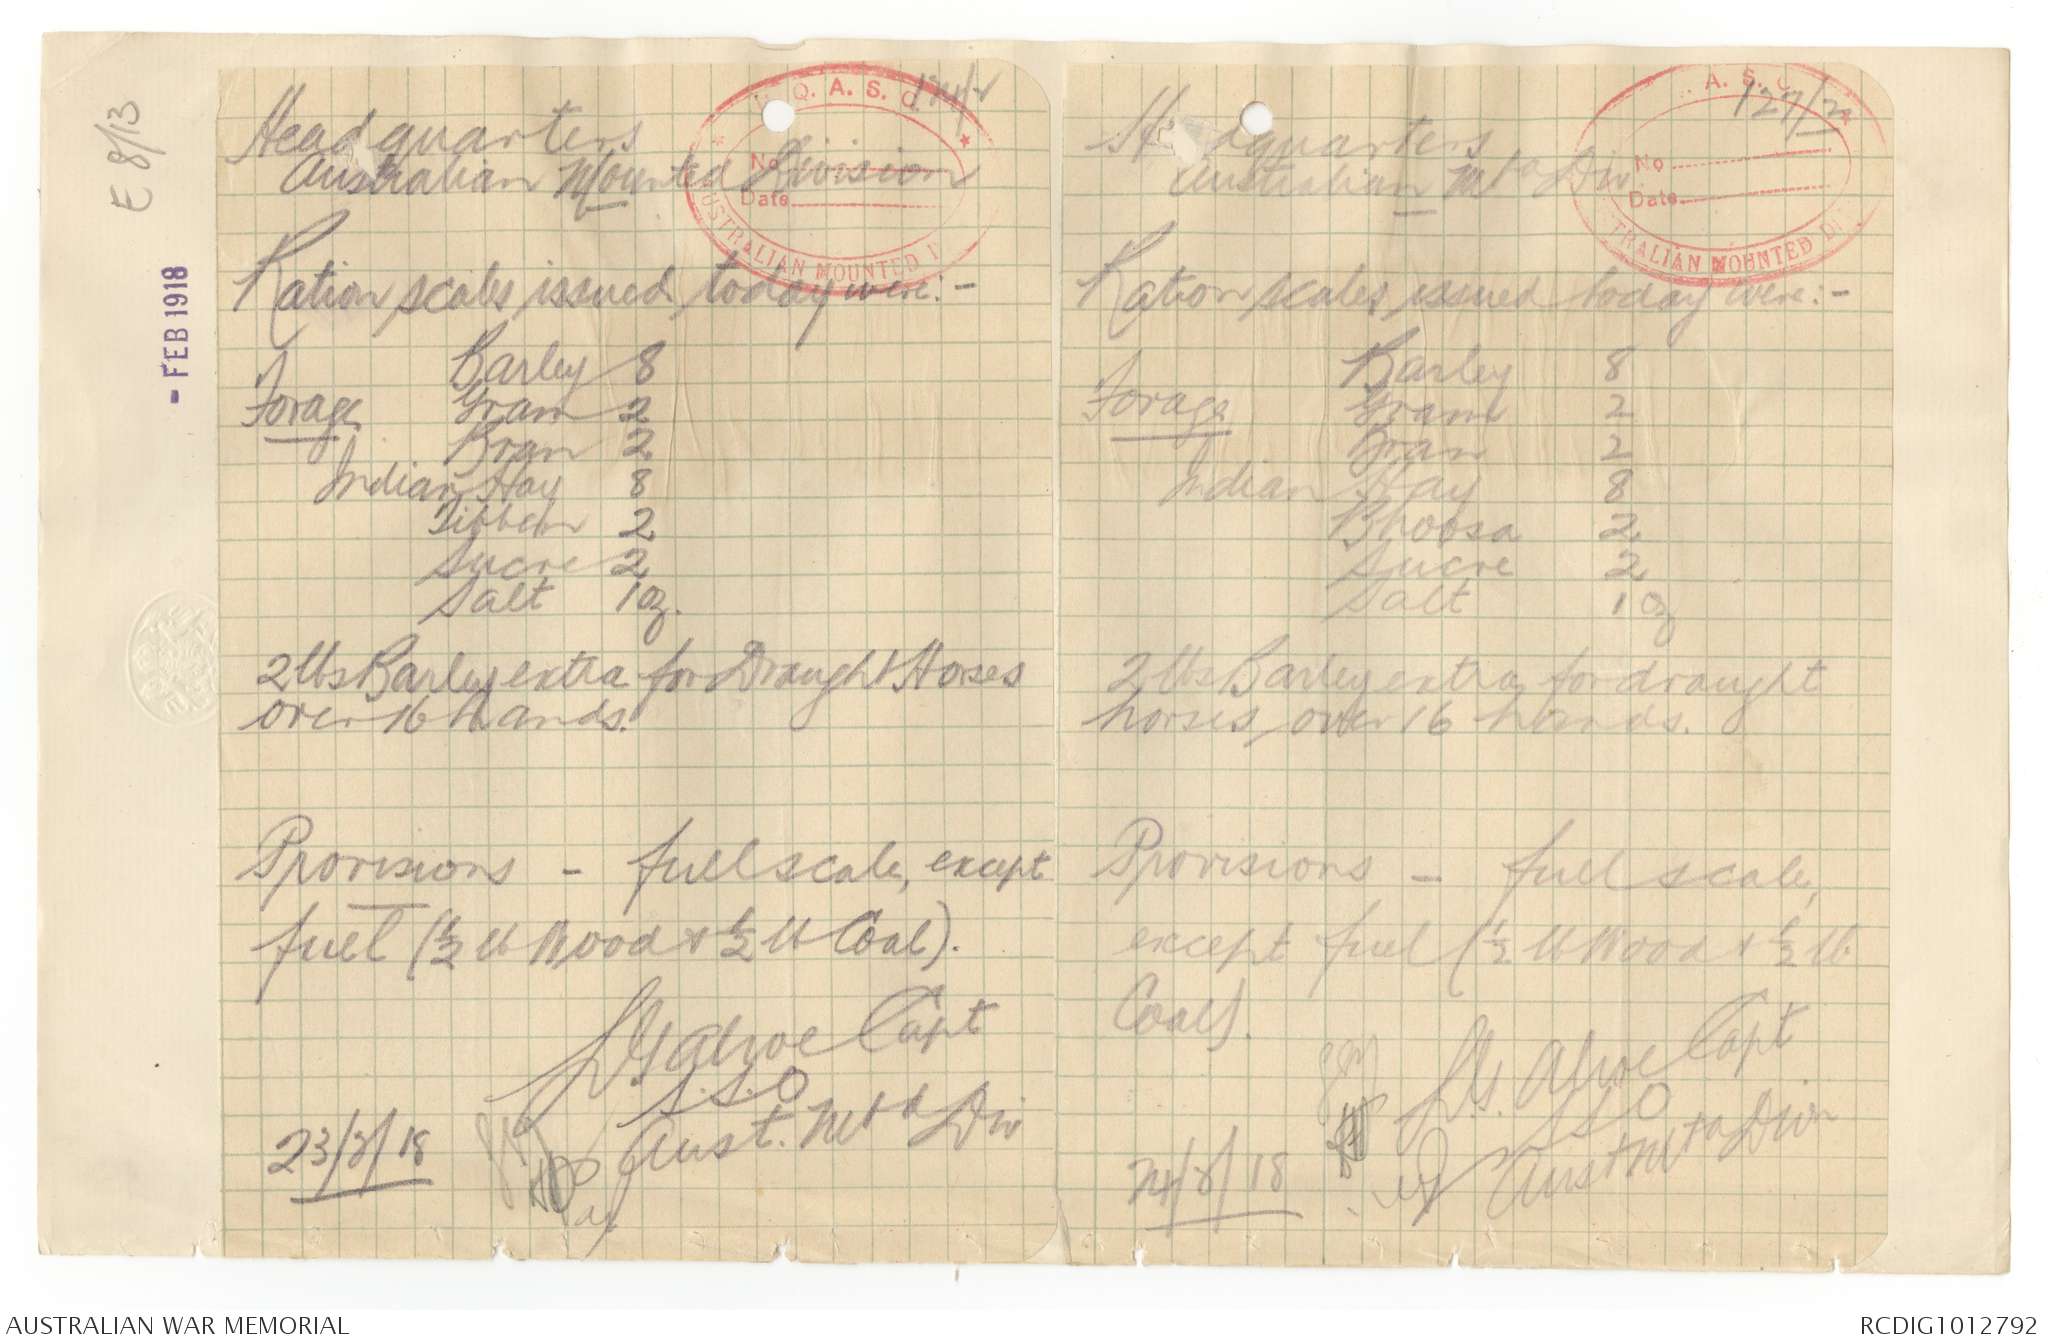 E 8/13
- FEB 1918
H.Q. A. S. C.
No
Date
AUSTRALIAN MOUNTED D
Headquarters
Australian Mounted Division
Ration scales issued today were:-
Forage Barley 8
Gram 2
Bran 2
Indian Hay 8
Tibben 2
Sucre 2
Salt 1 oz.
2 lbs Barley extra for Draught Horses
over 16 hands.
Provisions - full scale, except
fuel (½ lb Wood & ½ lb Coal).
Capt
S.S.O
Aust. Mtd Div
23/2/18
A. S. C
127/2
No
Date
TRALIAN MOUNTED DI
Headquarters
Australian Mtd Div
Ration scales issued today were:-
Forage Barley 8
Gram 2
Bran 2
Indian Hay 8
Bhoosa 2
Sucre 2
Salt 1 oz
2 lbs Barley extra for draught
horses over 16 hands.
Provisions - full scale,
except fuel (½ lb Wood & ½ lb
Coal).
Capt
S.S.O
Aust Mtd Divn
24/2/18
AUSTRALIAN WAR MEMORIAL
RCDIG1012792